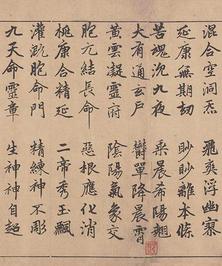 混合空洞炁　飛爽浮幽寥
延康無期劫　眇眇離本條
苦魂沈九夜　乘晨希陽翹
大有通玄戶　鬱單降晨霄
黃雲凝靈府　陰陽氣象交
胞元結長命　惡根應化消
桃康合精延　二帝秀玉飄
灌溉胞命門　精練神不彫
九天命靈章　生神神自超